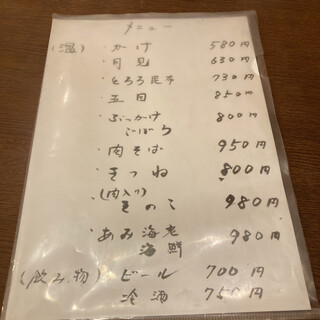 メニュー
(温) ・かけ 580円
・月見 630円
・とろろ昆布 730円
・五目 850円
・ぶっかけ 800円
ごぼう
・肉そば 950円
・きつね 800円
(肉入り)
・きのこ 980円
・あみ海老 980円
海鮮
(飲み物) ビール 700円
冷酒 750円